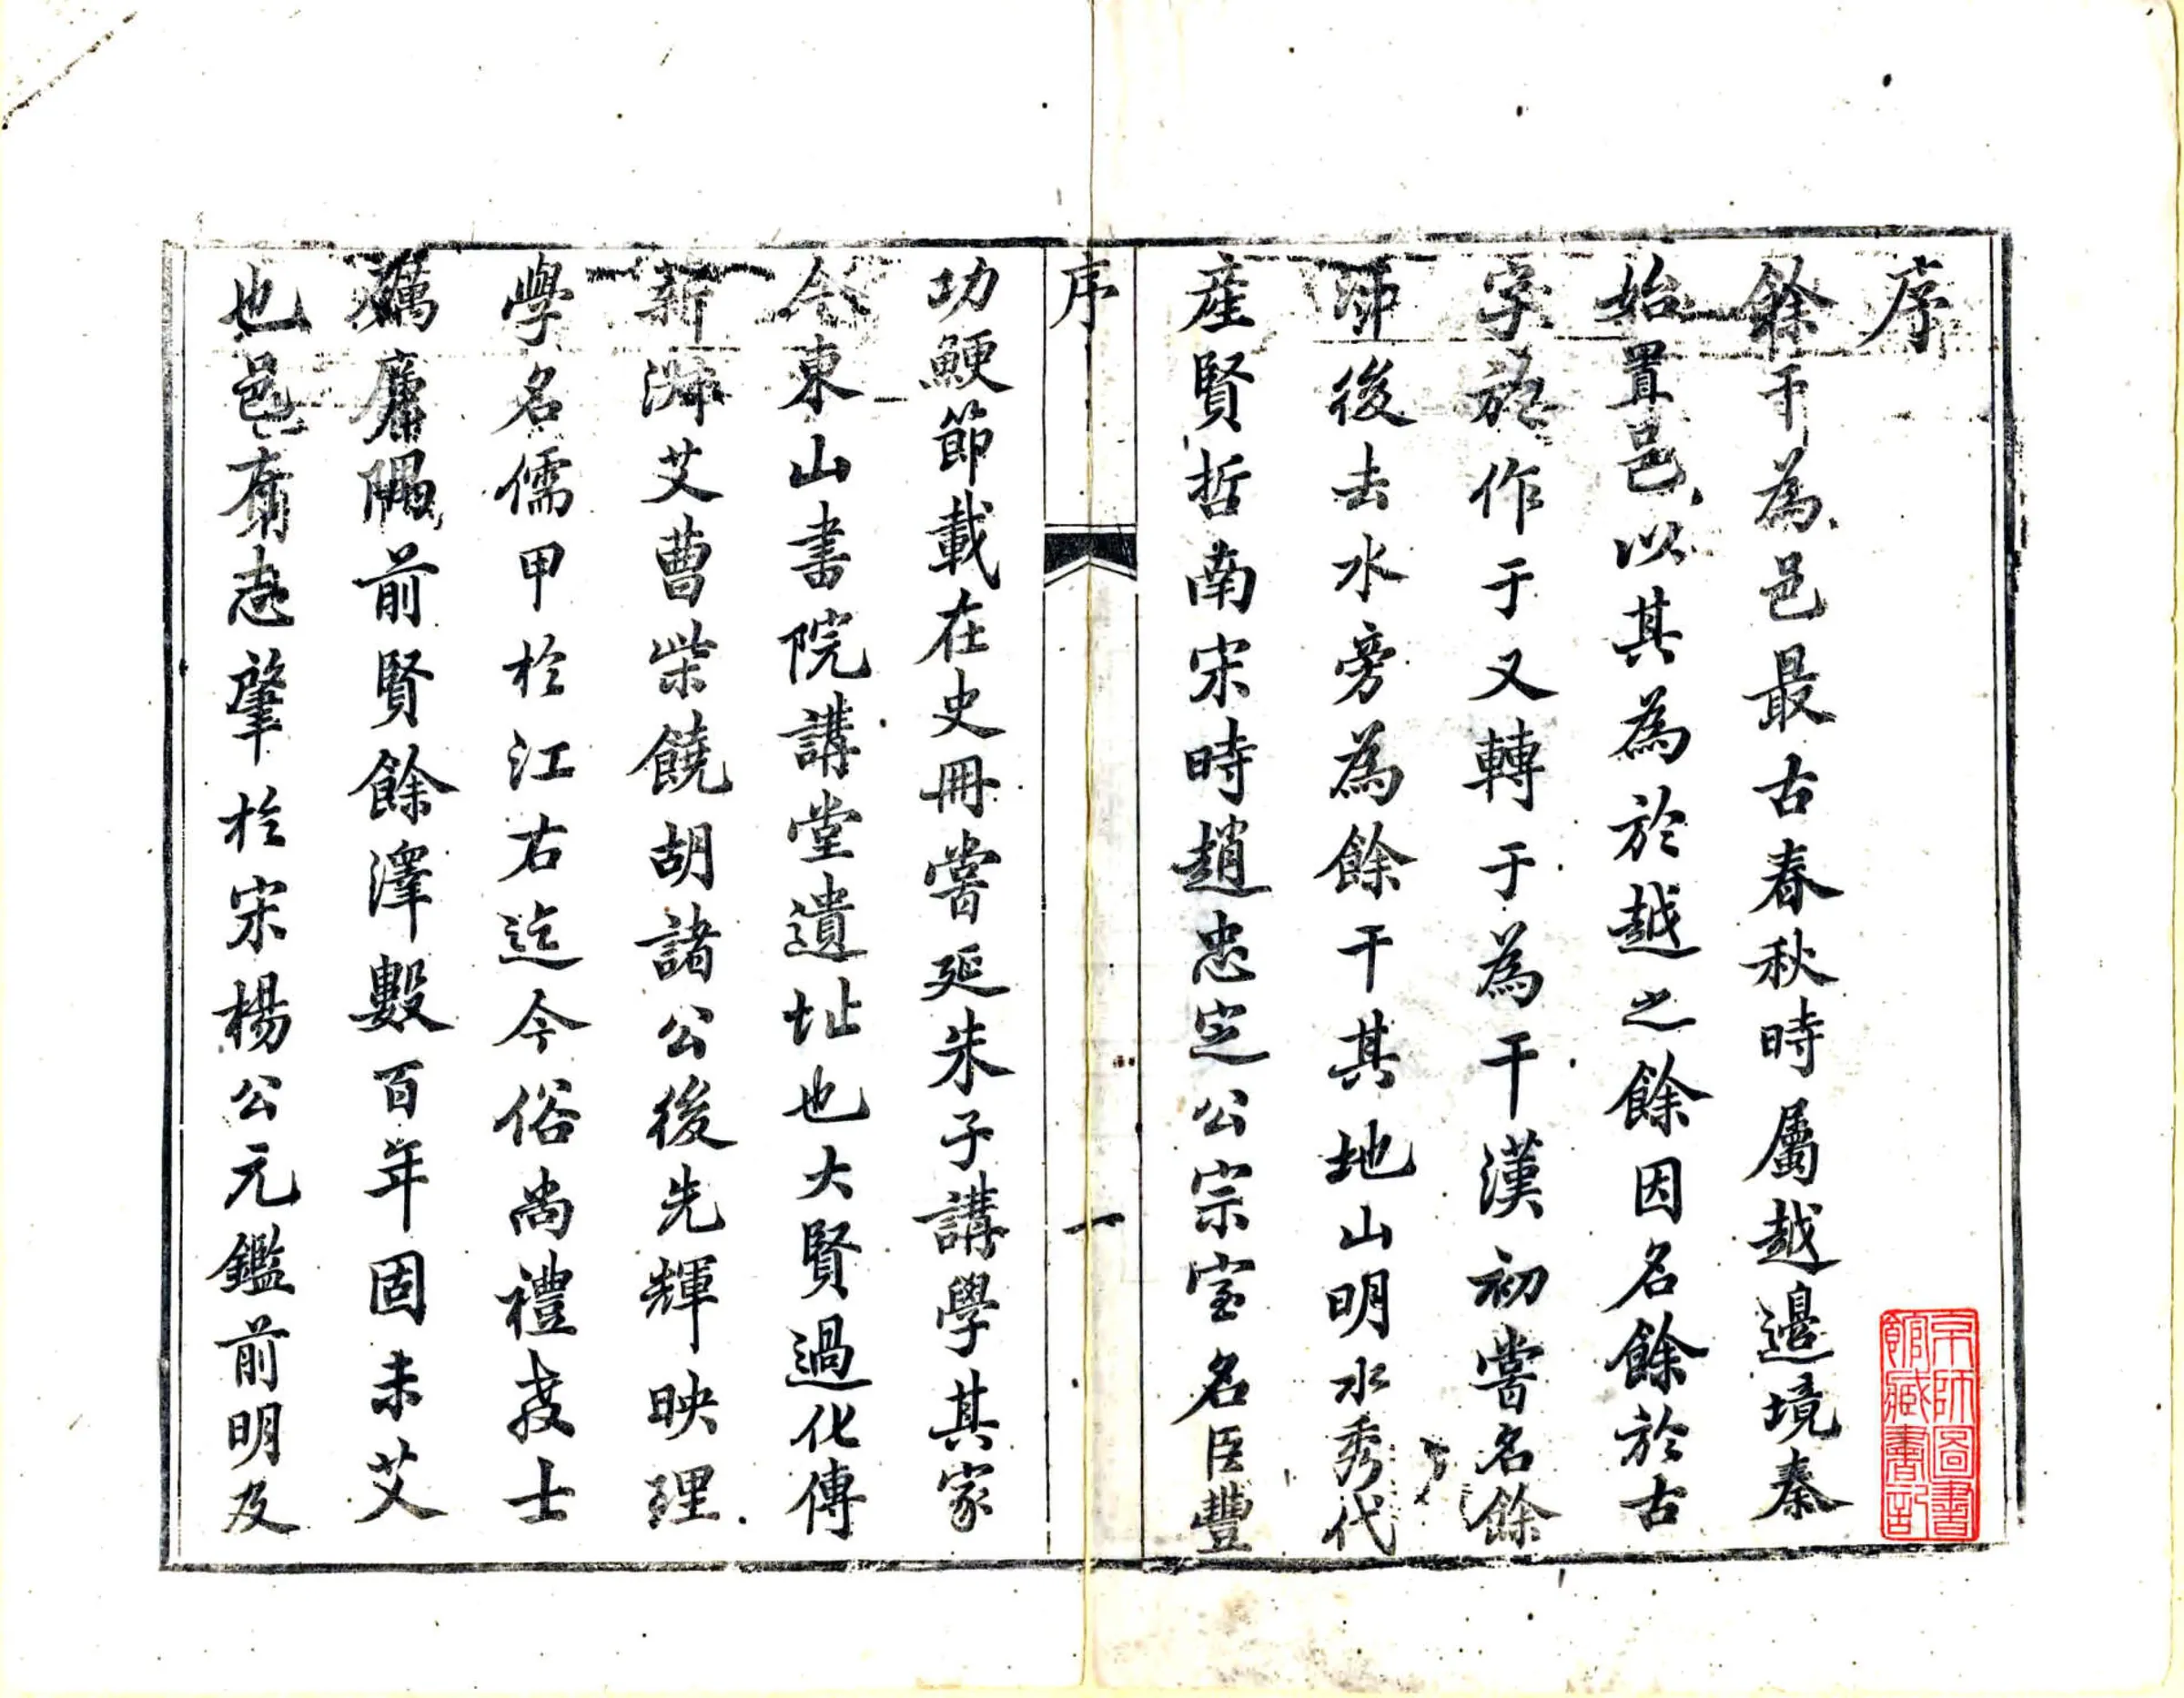 序
餘干為邑最古春秋時屬越邊境秦
始置邑以其為於越之餘因名餘於古
字於作于又轉于為干漢初嘗名餘
汗後去水旁為餘干其地山明水秀代
產賢哲南宋時趙忠定公宗室名臣豐
序
一
功鯁節載在史冊嘗延朱子講學其家
今東山書院講堂遺址也大賢過化傳
薪淵艾曹柴饒胡諸公後先輝映理
學名儒甲於江右迄今俗尚禮教士
礪廉隅前賢餘澤數百年固未艾
也邑有志肇於宋楊公元鑑前明及
京師圖書
館藏書記